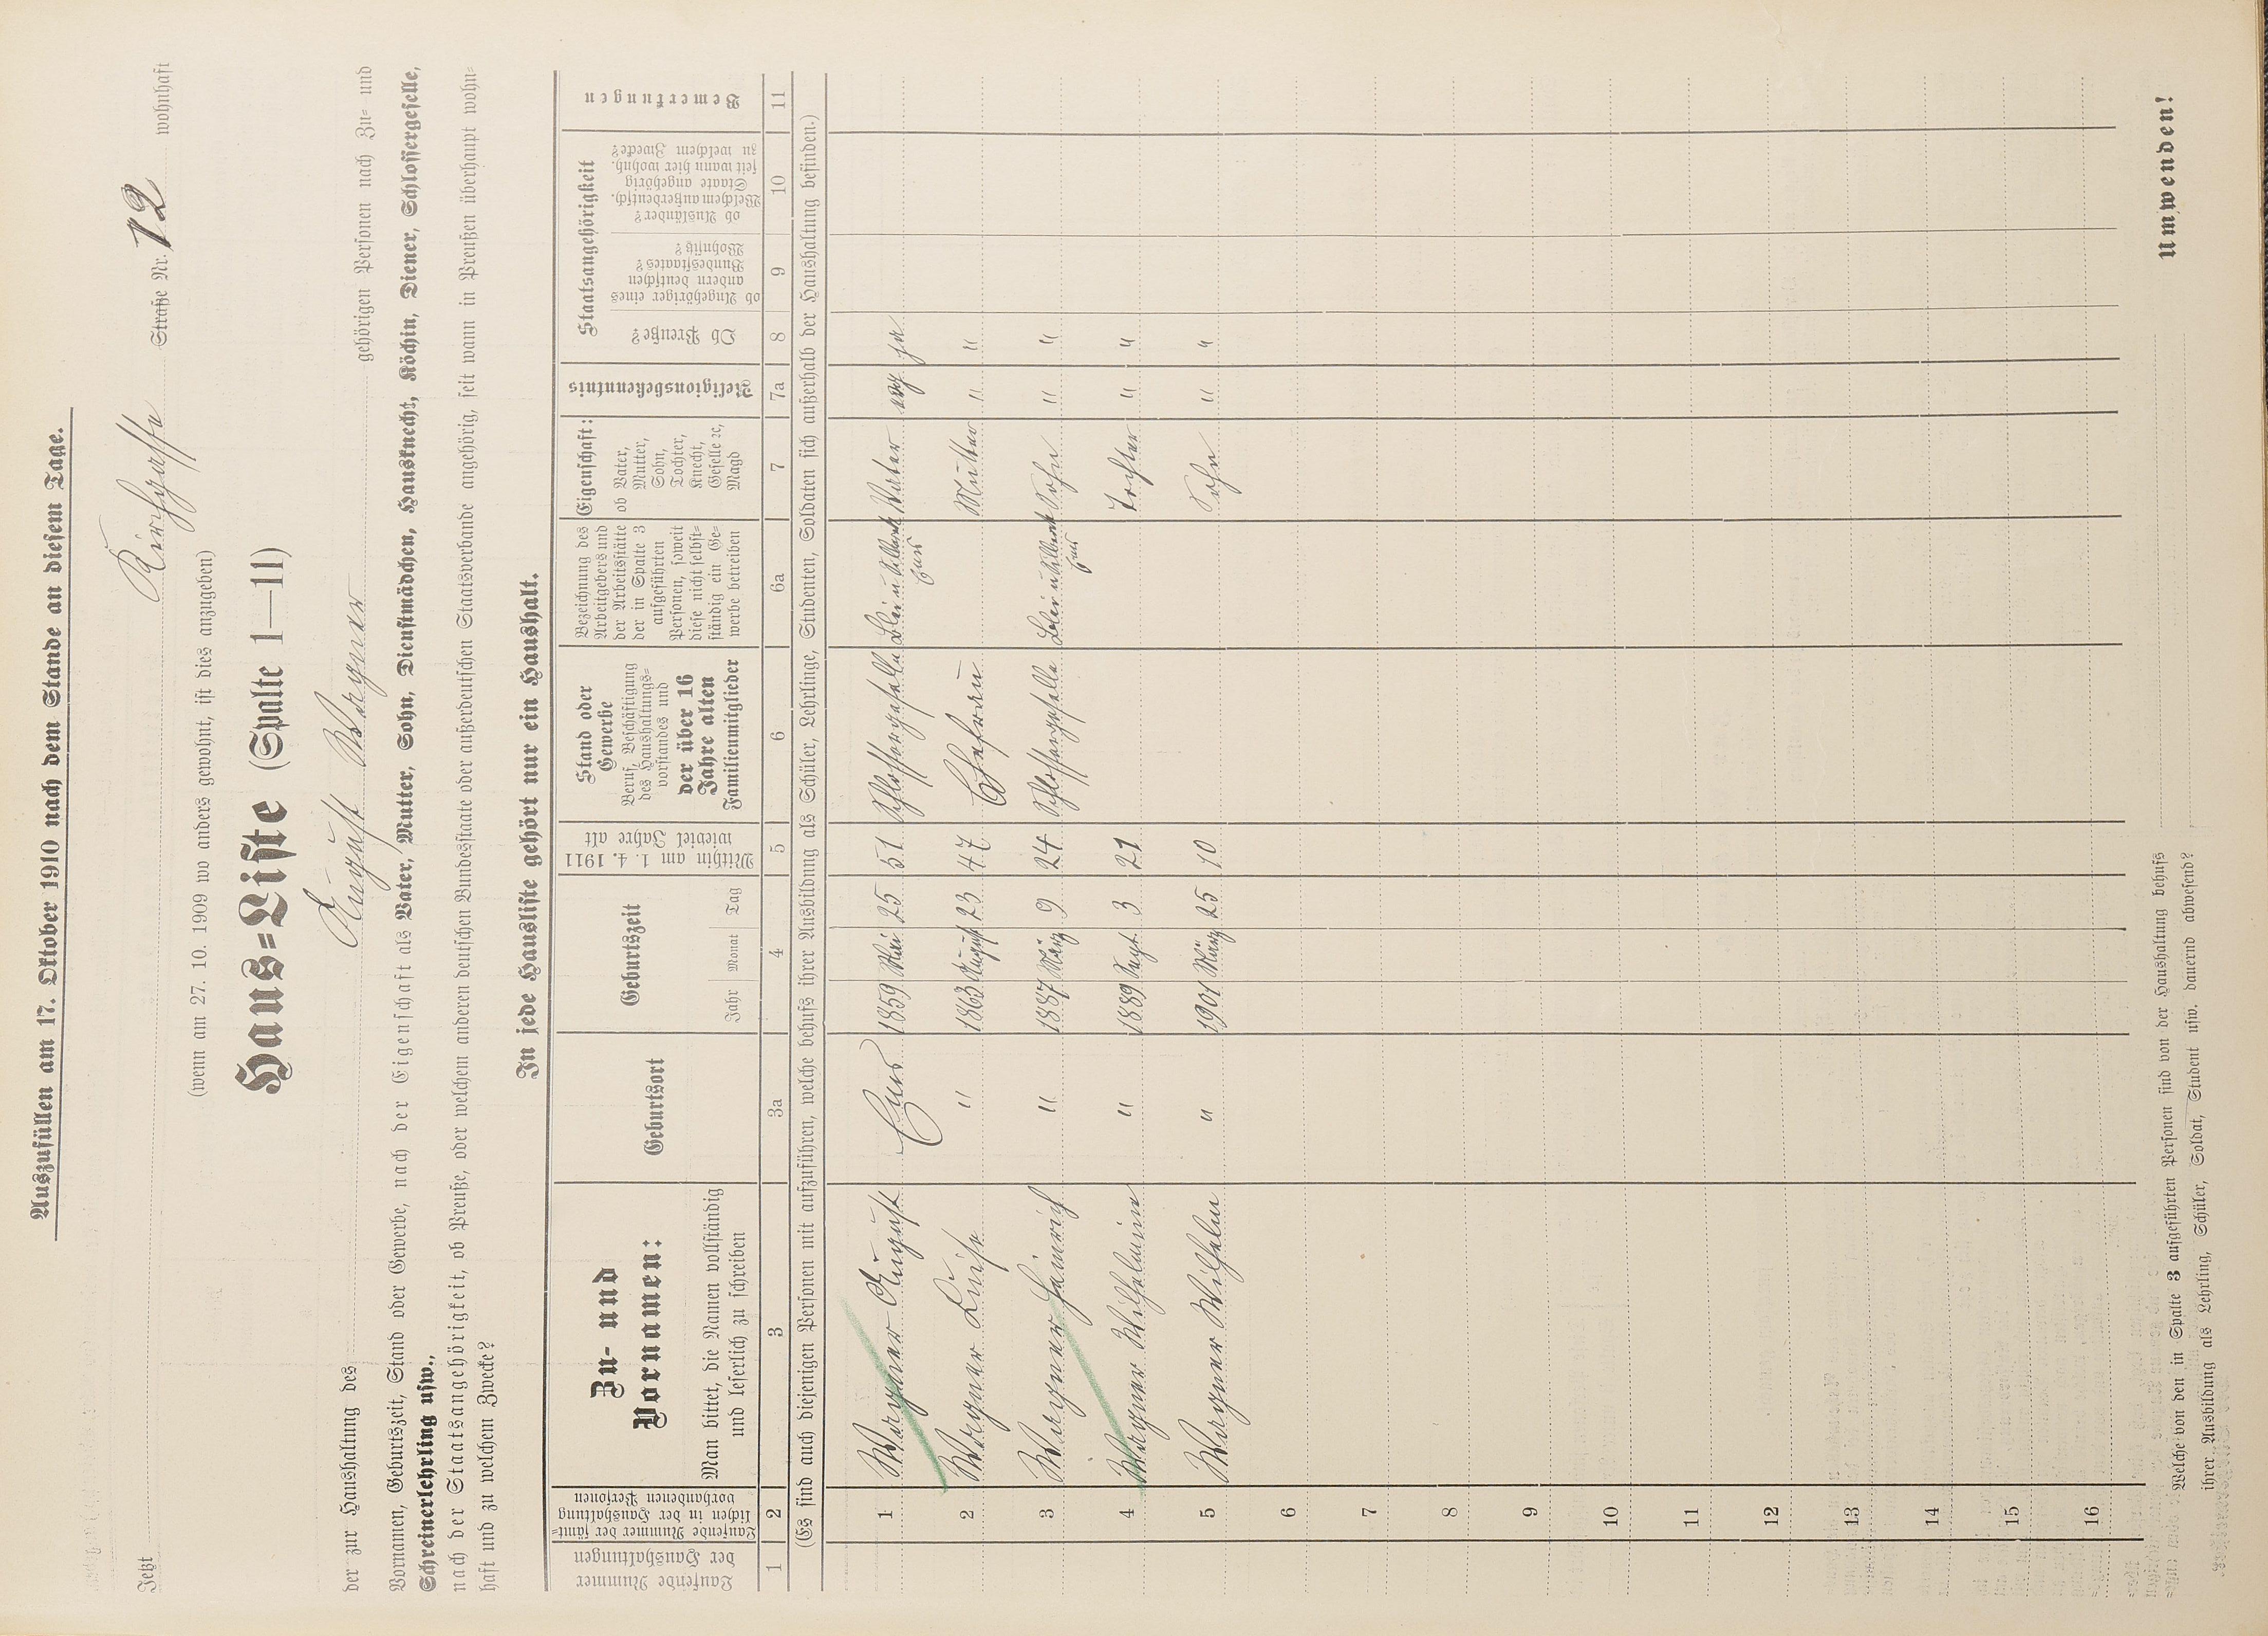 Auszufüllen am 17. Oktober 1910 nach dem Stande an diesem Tage.
Jetzt Kirchgasse Straße Nr. 12 wohnhaft
(wenn am 27. 10. 1909 wo anders gewohnt, ist dies anzugeben)
Haus=Liste (Spalte 1—11)
der zur Haushaltung des August Wagner gehörigen Personen nach Zu= und
Vornamen, Geburtszeit, Stand oder Gewerbe, nach der Eigenschaft als Vater, Mutter, Sohn, Dienstmädchen, Hausknecht, Köchin, Diener, Schlossergeselle,
Schreinerlehrling usw.,
nach der Staatsangehörigkeit, ob Preuße, oder welchem anderen deutschen Bundesstaate oder außerdeutschen Staatsverbande angehörig, seit wann in Preußen überhaupt wohn=
haft und zu welchem Zwecke?
In jede Hausliste gehört nur ein Haushalt.
Laufende Nummer
der Haushaltungen
Laufende Nummer der sämt=
lichen in der Haushaltung
vorhandenen Personen
Zu- und
Vornamen:
Man bittet, die Namen vollständig
und leserlich zu schreiben
Geburtsort
Geburtszeit
Jahr Monat Tag
Mithin am 1. 4. 1911
wieviel Jahre alt
Stand oder
Gewerbe
Beruf, Beschäftigung
des Haushaltungs=
vorstandes und
der über 16
Jahre alten
Familienmitglieder
Bezeichnung des
Arbeitgebers und
der Arbeitsstätte
der in Spalte 3
aufgeführten
Personen, soweit
diese nicht selbst=
ständig ein Ge=
werbe betreiben
Eigenschaft:
ob Vater,
Mutter,
Sohn,
Tochter,
Knecht,
Geselle 2c,
Magd
Religionsbekenntnis
Staatsangehörigkeit
Ob Preuße?
ob Angehöriger eines
andern deutschen
Bundesstaates?
Wohnsitz?
ob Ausländer?
Welchem außerdeutsch.
Staate angehörig
seit wann hier wohnh.
zu welchem Zwecke?
Bemerkungen
1 2 3 3a 4 5 6 6a 7 7a 8 9 10 11
(Es sind auch diejenigen Personen mit aufzuführen, welche behufs ihrer Ausbildung als Schüler, Lehrlinge, Studenten, Soldaten sich außerhalb der Haushaltung befinden.)
1 Wagner August Ems 1859 Mai 25 51 Schlossergeselle Blei u Silberwerk Ems Vater evg ja
2 Wagner Luise " 1863 August 23 47 Ehefrau Mutter " "
3 Wagner Heinrich " 1887 März 9 24 Schlossergeselle Blei u Silberwerk Ems Sohn " "
4 Wagner Wilhelmine " 1889 Sept. 3 21 Tochter " "
5 Wagner Wilhelm " 1901 März 25 10 Sohn " "
6
7
8
9
10
11
12
13
14
15
16
Welche von den in Spalte 3 aufgeführten Personen sind von der Haushaltung behufs
ihrer Ausbildung als Lehrling, Schüler, Soldat, Student usw. dauernd abwesend?
Umwenden!